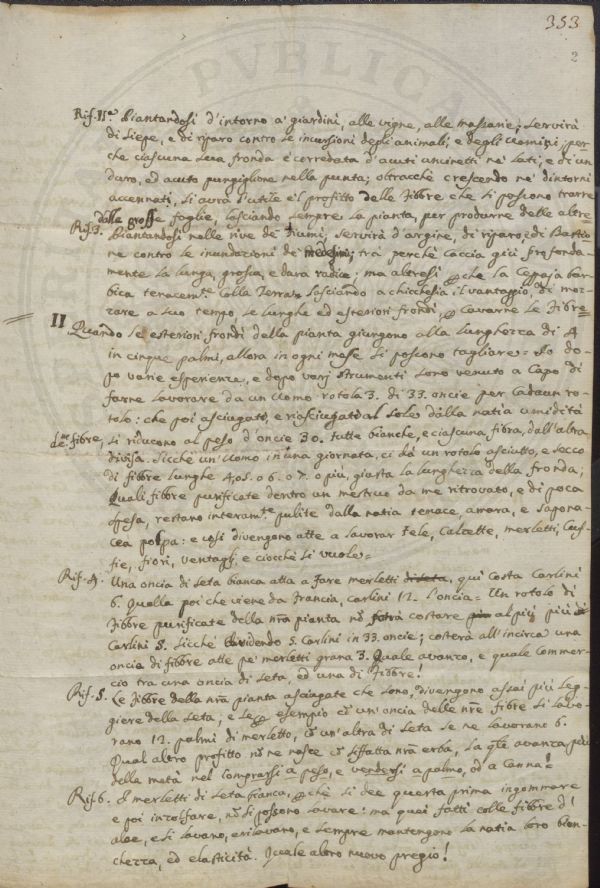 353
2
Rif. IIa. Piantandosi d'intorno a' giardini, alle vigne, alle massarie; servirà
di siepe, e di riparo contro le incursioni degli animali, e degli uomini; per
che ciascuna sua fronda è corredata d'acuti uncinetti ne' lati; e di un
duro, ed acuto pungiglione nella punta; oltracchè crescendo ne' dintorni
accennati, si avrà l'utile e 'l profitto delle fibbre che si possono trarre
dalle grosse foglie, lasciando sempre la pianta, per produrne delle altre
Rif. 3. Piantandosi nelle rive de' fiumi, servirà d'argine, di riparo, e di Bastio
ne contro le inundazioni de' medesimi; tra perchè caccia giù profonda-
mente la lunga, grossa, e dura radice; ma altresì che la Ceppaja bar-
bica tenacemte. colla Terra: Lasciando a chicchesia il vantaggio, di moz-
zare a suo tempo le lunghe ed esteriori frondi, cavarne le fibre
II Quando le esteriori frondi della pianta giungono alla lunghezza di 4
in cinque palmi, allora in ogni mese si possono tagliare= Io do-
po varie esperienze, e dopo varj strumenti sono venuto a Capo di
farne lavorare da un Uomo rotola 3. di 33. oncie per cadaun ro-
tolo: che poi asciugato, e riasciugato al Sole dalla natia umidità
le. fibre, si riducono al peso d'oncie 30. tutte bianche, e ciascuna fibra, dall'altra
divisa. Sicchè un Uomo in una giornata, ci dà un rotolo asciutto, e secco
di fibbre lunghe 4, o 5. o 6. o 7. o più, giusta la lunghezza della fronda;
Quali fibbre purificate dentro un mestruo da me ritrovato, e di poca
spesa, restano interamte. pulite dalla natia tenace, amara, e sapona-
cea polpa: e così divengono atte a lavorar tele, calzette, merletti, Cuf-
fie, fiori, ventagli e ciocchè si vuole=
Rif. 4. Una oncia di seta bianca atta a fare merletti, qui costa Carlini
6. Quella poi che viene da Francia, carlini 12. l'oncia= Un rotolo di
fibbre purificate della nra pianta nō potrà costare al più più
Carlini 5. Sicchè dividendo 5. Carlini in 33. oncie; costerà all'incirca una
oncia di fibbre atte pe' merletti grana 3. Quale avanzo, e quale Commer-
cio tra una oncia di seta, ed una di fibbre!
Rif. 5. Le fibbre della nra pianta asciugate che sono, divengono assai più leg-
giere della seta; e se esempio cō un'oncia delle nre fibre si lavo-
rano 12. palmi di merletto, cō un'altra di seta se ne lavorano 6.
Qual altro profitto nō ne nasce cō siffatta nra erba, la qle avanza più
della metà nel comprarsi a peso, e vendersi a palmo, od a canna!
Rif. 6. I merletti di seta bianca, chè si dee questa prima ingommare
e poi inzolfare, nō si possono lavare: ma quei fatti colle fibbre d'
aloe, e si lavano, e rilavano, e sempre mantengono la natia loro bian-
chezza, ed elasticità. Quale altro nuovo pregio!